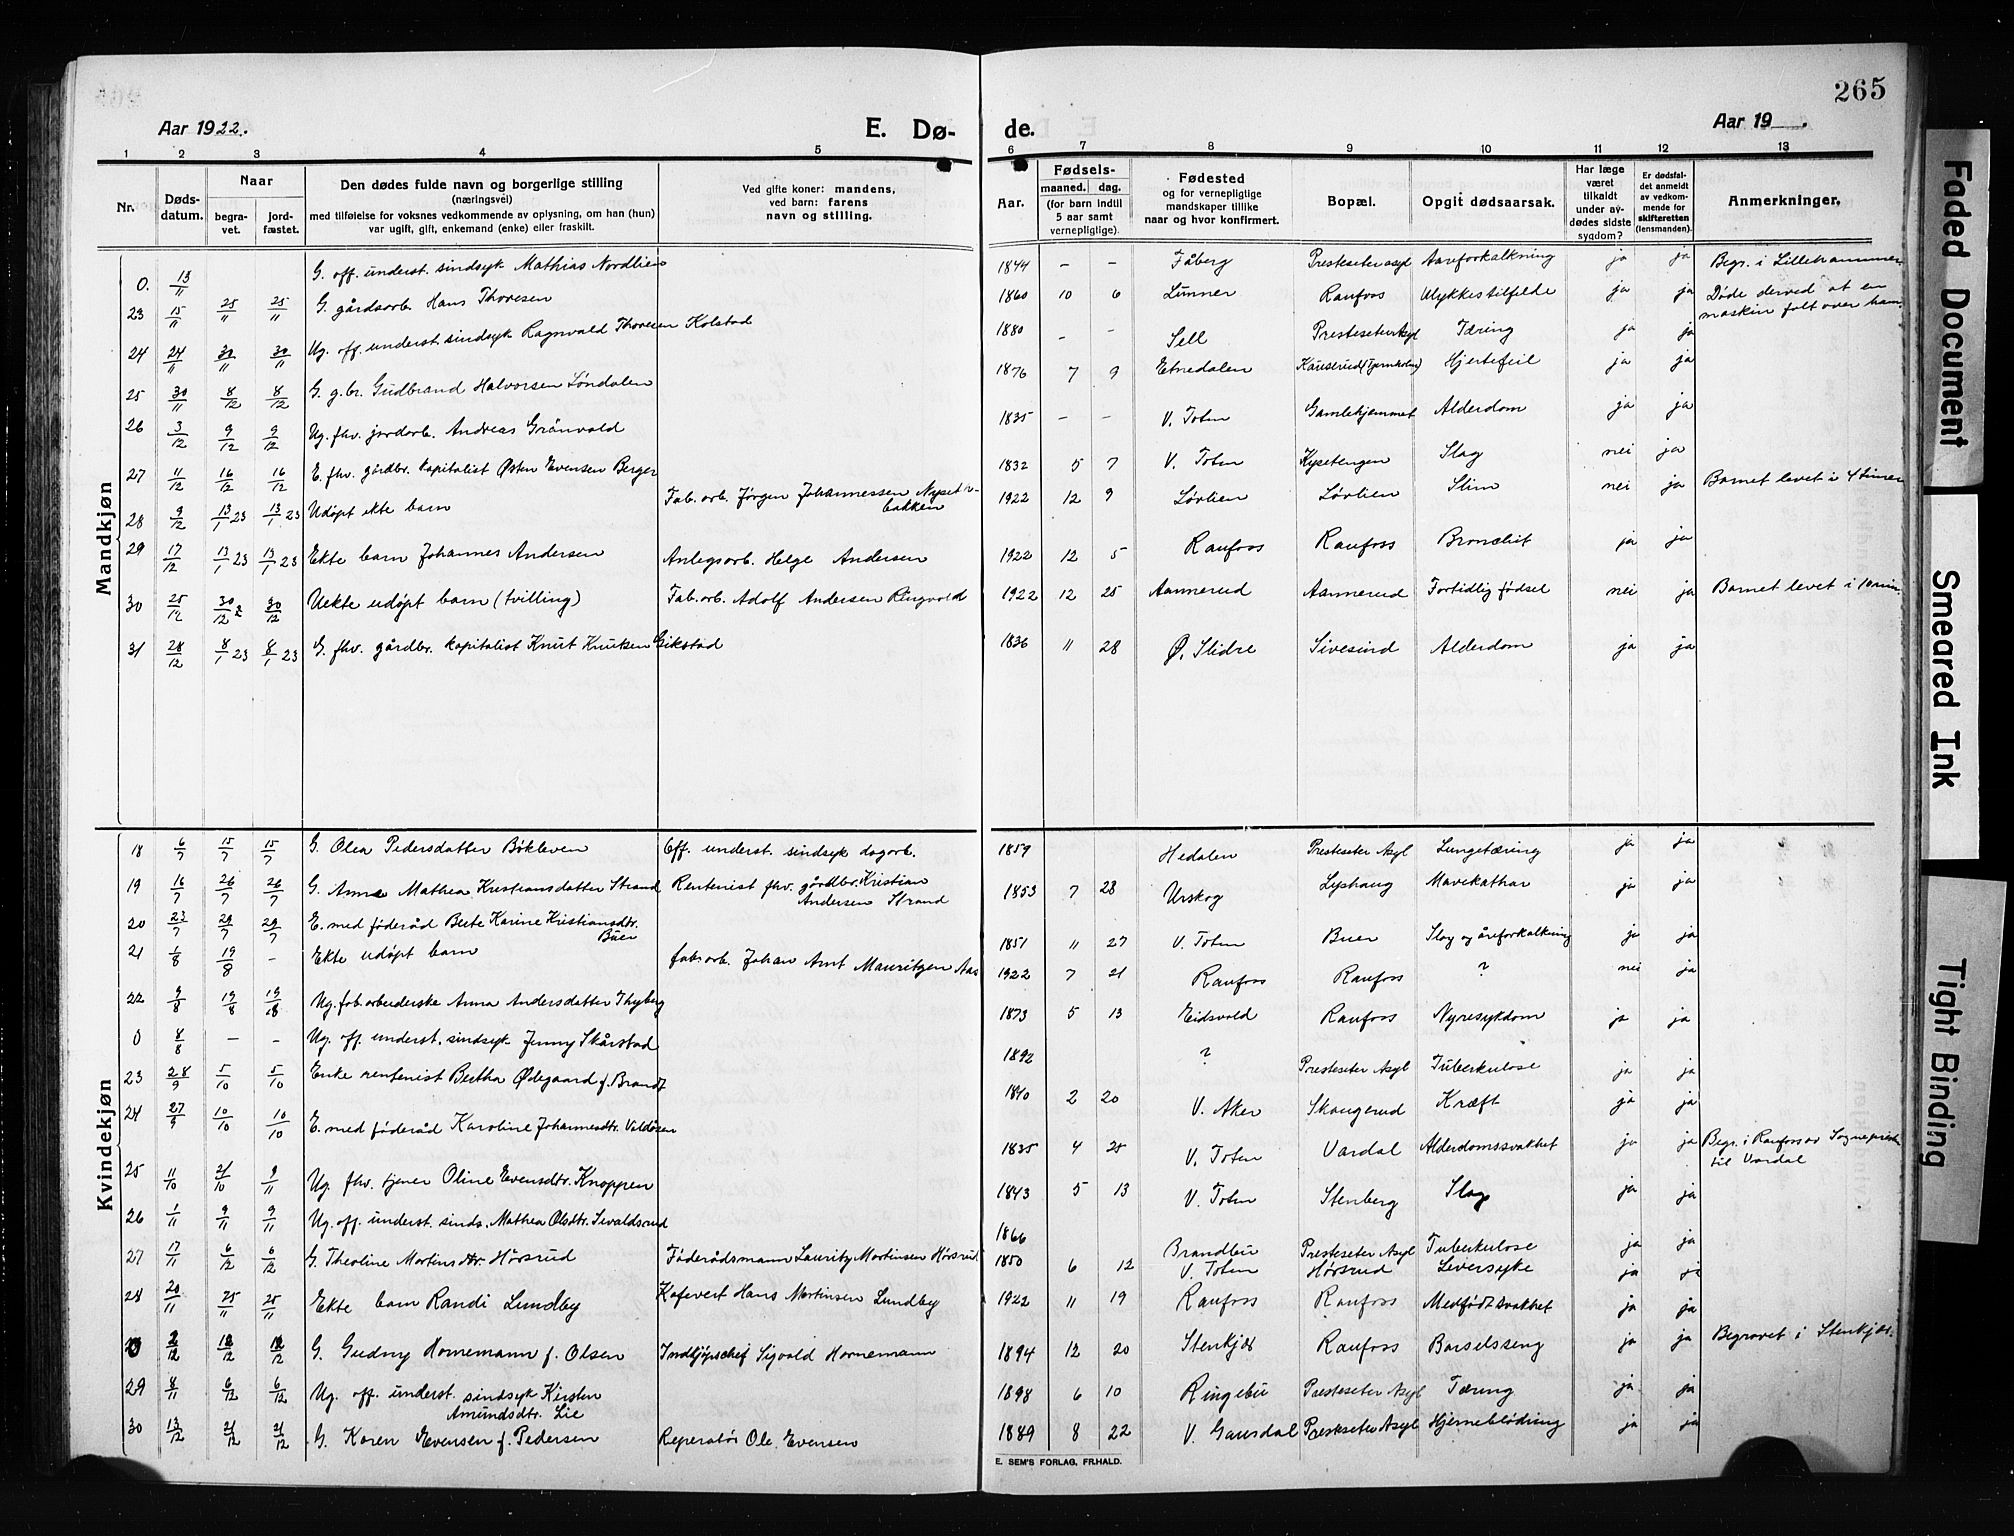 265
Aar 1922.
E. Dø-
de.
Aar 19 .
1 2 3 4 5 6 7 8 9 10 11 12 13
Nr.
Døds-
datum.
Naar
begra-
vet.
jord-
fæstet.
Den dødes fulde navn og borgerlige stilling
(næringsvei)
med tilføielse for voksnes vedkommende av oplysning, om han (hun)
var ugift, gift, enkemand (enke) eller fraskilt.
Ved gifte koner: mandens,
ved barn: farens
navn og stilling.
Aar.
Fødsels-
maaned. dag.
(for barn indtil
5 aar samt
vernepligtige).
Fødested
og for vernepligtige
mandskaper tillike
naar og hvor konfirmert.
Bopæl.
Opgit dødsaarsak.
Har læge
været
tilkaldt
under av-
dødes sidste
sygdom?
Er dødsfal-
det anmeldt
av vedkom-
mende for
skifteretten
(lensmanden).
Anmerkninger,
Mandkjøn
0. 13/11 G. off. underst. sindsyk Mathias Nordlien 1844 – – Fåberg Presteseter asyl Aareforkalkning ja ja Begr. i Lillehammer
23 15/11 25/11 25/11 G. gårdsarb. Hans Thoresen 1860 10 6 Lunner Raufoss Ulykkestilfelde ja ja Døde derved at en
maskin falt over ham.
24 24/11 30/11 30/11 Ug. off. underst. sindsyk Ragnvald Thoresen Kolstad 1880 – – Sell Presteseter Asyl Tæring ja ja
25 30/11 8/12 8/12 G. g.br. Gudbrand Halvorsen Løndalen 1876 7 9 Etnedalen Hjertefeil ja ja
26 3/12 9/12 9/12 Ug. fhv. jordarb. Andreas Grønvold 1835 – – V. Toten Gamlehjemmet Alderdom ja ja
27 11/12 16/12 16/12 E. fhv. gårdbr. kapitalist Østen Evensen Berger 1832 5 7 V. Toten Slag nei ja
28 9/12 13/1 23 13/1 23 Udøpt ekte barn Fab. arb. Jørgen Johannessen Nyset-
bakken 1922 12 9 Lørlien Lørlien Slim nei ja Barnet levet i 4 timer
29 17/12 13/1 23 13/1 23 Ekte barn Johannes Andersen Anlegsarb. Helge Andersen 1922 12 5 Raufoss Raufoss Bronchit ja ja
30 25/12 30/12 2 30/12 Uekte udøpt barn (tvilling) Fab. arb. Adolf Andersen Ringvold 1922 12 25 Aannerud Aannerud Fortidlig fødsel nei ja Barnet levet i 10 min.
31 28/12 8/1 23 8/1 23 G. fhv. gårdbr. kapitalist Knut Knutsen Gikstad 1836 11 28 Ø. Slidre Sivesind Alderdom ja ja
Kvindekjøn
18 6/7 15/7 15/7 G. Olea Pedersdatter Bøkleven Off. underst. sindsyk dagarb. 1859 Hedalen Presteseter Asyl Lungetæring ja ja
19 16/7 26/7 26/7 G. Anna Mathea Kristiansdatter Strand Rentenist fhv. gårdbr. Kristian
Andersen Strand 1853 7 28 Urskog Lyshaug Mavekathar ja ja
20 23/7 29/7 29/7 E. med føderåd Bete Karine Kristiansdtr.
Buer 1851 11 27 V. Toten Buer Slag og åreforkalkning ja ja
21 1/8 19/8 – Ekte udøpt barn fabr. arb. Johan Arnt Mauritzen Aas 1922 7 21 Raufoss Raufoss ? nei ja
22 9/8 19/8 19/8 Ug. fab. arbeiderske Anna Andersdatter Thyberg 1873 5 13 Eidsvold Raufoss Nyresykdom ja ja
0 8/8 – – Ug. off. underst. sindsyk Jenny Skårstad 1892 ? Presteseter Asyl Tuberkulose ja ja
23 28/9 5/10 5/10 Enke rentenist Bertha Ødegaard f. Brandt 1840 2 20 V. Aker Skougerud Kræft ja ja
24 27/9 10/10 10/10 E. med føderåd Karoline Johannesdtr. Valdåsen 1835 4 25 V. Toten Vardal Alderdomssvakhet ja ja Begr. i Raufoss av Sogneprest
til Vardal
25 11/10 21/10 9/11 Ug. fhv. tjener Oline Evensdtr. Knoppen 1843 5 13 V. Toten Stenberg Slag ja ja
26 1/11 9/11 9/11 Ug. off. underst. sinds. Mathea Olsdtr. Sevaldsrud 1866 Brandbu Presteseter Asyl Tuberkulose ja ja
27 17/11 6/12 6/12 G. Theoline Mortensdtr. Hørsrud Føderådsmann Lauritz Mortinsen Hørsrud 1850 6 12 V. Toten Hørsrud Leversyke ja ja
28 20/11 25/11 25/11 Ekte barn Randi Lundby Kafevert Hans Martinsen Lundby 1922 11 19 Raufoss Raufoss Medfødt svakhet ja ja
0 2/12 12/12 12/12 G. Gudny Hornemann f. Olsen Indkjøpschef Sigvald Hornemann 1894 12 20 Stenkjær Raufoss Barselsseng ja ja Begravet i Stenkjær.
29 8/11 6/12 6/12 Ug. off. underst. sindsyk Kirsten
Amundsdtr. Lie 1898 6 10 Ringebu Presteseter Asyl Tæring ja ja
30 13/12 21/12 21/12 G. Karen Evensen f. Pedersen Reperatør Ole Evensen 1889 8 22 V. Gausdal Presteseter Asyl Hjerneblødning ja ja
E. SEM'S FORLAG, FR.HALD.
Faded Document
Smeared Ink
Tight Binding